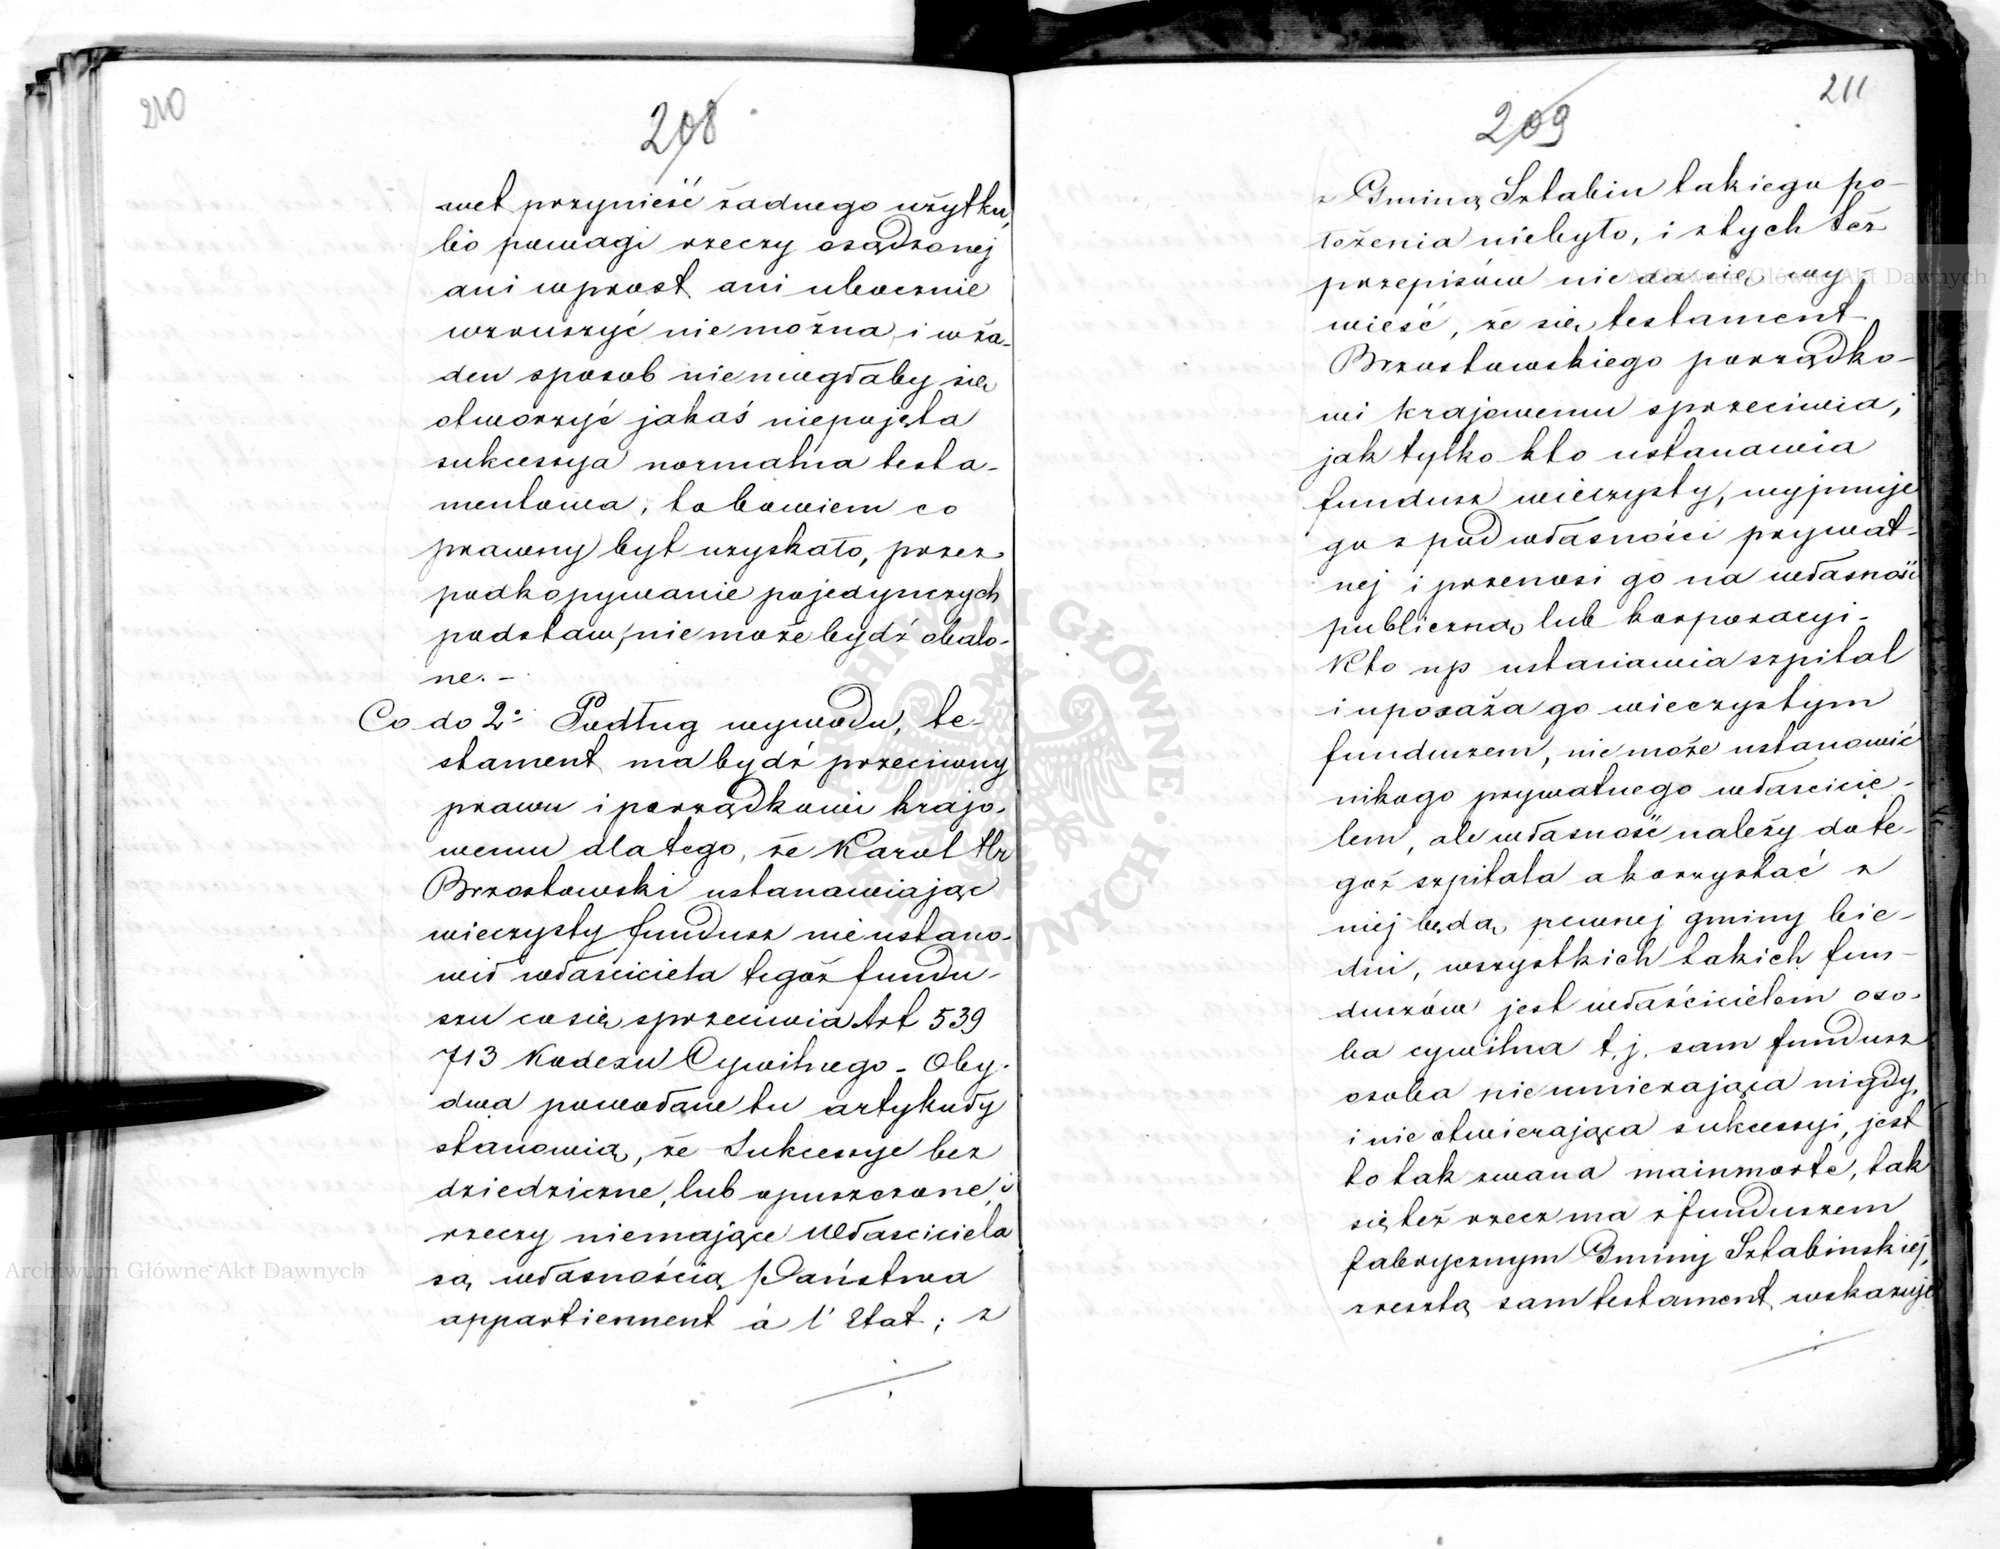 210
208
wet przynieść żadnego użytku,
bo powagi rzeczy osądzonej
ani wprost ani ubocznie
wzruszyć nie można, i w ża-
den sposób niemogłaby się
otworzyć jakaś niepojęta
sukcessya normalna testa-
mentowa, to bowiem co
prawny byt uzyskało, przez
podkopywanie pojedynczych
podstaw, nie może bydź obalo-
ne. -
Co do 2° Podług wywodu, te-
stament ma bydź przeciwny
prawu i porządkowi krajo-
wemu dla tego, że Karol Hr
Brzostowski ustanawiając
wieczysty fundusz nie ustano-
wił właściciela tegoż fundu-
szu co się sprzeciwia Art 539
713 Kodexu Cywilnego - Oby-
dwa powołane tu artykuły
stanowią, że Sukcessye bez
dziedziczne, lub opuszczone, i
rzeczy niemające właściciela
są własnością Państwa
appartiennent à l'Etat; z
211
209
z Gminą Sztabin takiego po-
łożenia niebyło, i z tych też
przepisów nie da się wy
wieść, że się testament
Brzostowskiego porządko-
wi krajowemu sprzeciwia,
jak tylko kto ustanawia
fundusz wieczysty, wyjmuje
go z pod własności prywat-
nej i przenosi go na własność
publiczną, lub korporacyi -
Kto np ustanawia szpital
i uposaża go wieczystym
funduszem, nie może ustanowić
nikogo prywatnego właścicie-
lem, ale własność należy do te-
goż szpitala a korzystać z
niej będą pewnej gminy bie-
dni, wszystkich takich fun-
duszów jest właścicielem oso-
ba cywilna t.j. sam fundusz
osoba nieumierająca nigdy,
i nie otwierająca sukcessyi, jest
to tak zwana mainmorte, tak
się też rzecz ma z funduszem
fabrycznym Gminy Sztabinskiej,
zresztą sam testament wskazuje
Archiwum Główne Akt Dawnych
Archiwum Główne Akt Dawnych